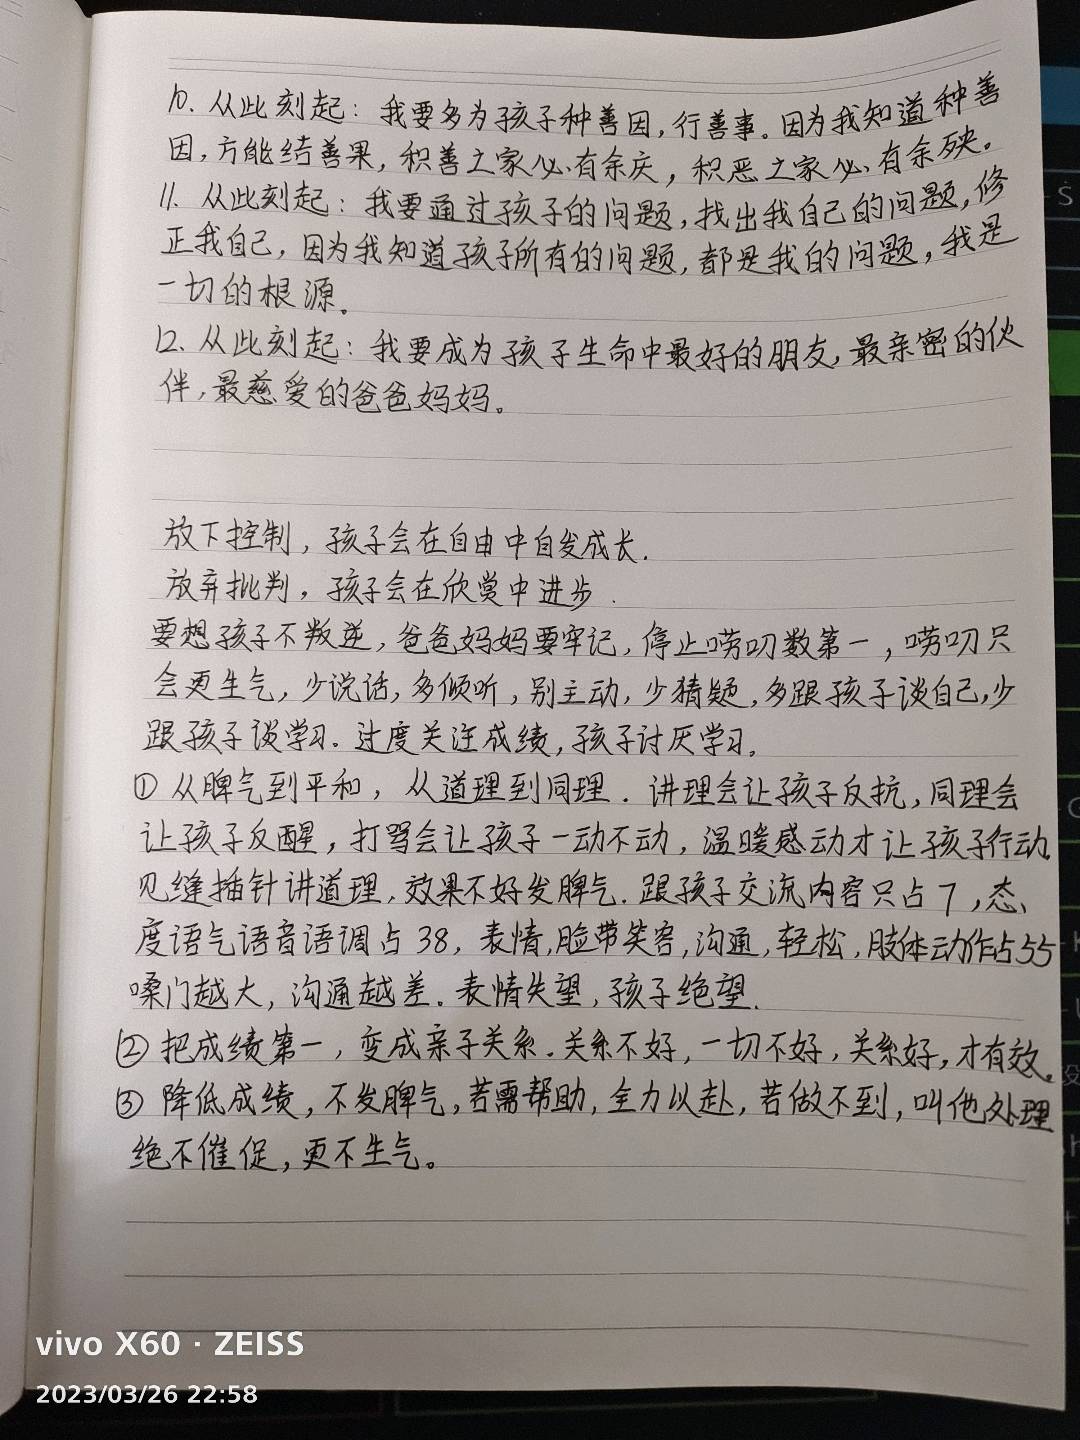 10. 从此刻起：我要多为孩子种善因，行善事。因为我知道种善
因，方能结善果，积善之家必有余庆，积恶之家必有余殃。
11. 从此刻起：我要通过孩子的问题，找出我自己的问题，修
正我自己，因为我知道孩子所有的问题，都是我的问题，我是
一切的根源。
12. 从此刻起：我要成为孩子生命中最好的朋友，最亲密的伙
伴，最慈爱的爸爸妈妈。
放下控制，孩子会在自由中自发成长.
放弃批判，孩子会在欣赏中进步.
要想孩子不叛逆，爸爸妈妈要牢记，停止唠叨数第一，唠叨只
会更生气，少说话，多倾听，别主动，少猜疑，多跟孩子谈自己，少
跟孩子谈学习. 过度关注成绩，孩子讨厌学习.
① 从脾气到平和，从道理到同理. 讲理会让孩子反抗，同理会
让孩子反醒，打骂会让孩子一动不动，温暖感动才让孩子行动.
见缝插针讲道理，效果不好发脾气. 跟孩子交流内容只占7，态
度语气语音语调占38，表情，脸带笑容，沟通，轻松，肢体动作占55
嗓门越大，沟通越差. 表情失望，孩子绝望.
② 把成绩第一，变成亲子关系. 关系不好，一切不好，关系好，才有效.
③ 降低成绩，不发脾气，若需帮助，全力以赴，若做不到，叫他处理
绝不催促，更不生气。
vivo X60 · ZEISS
2023/03/26 22:58